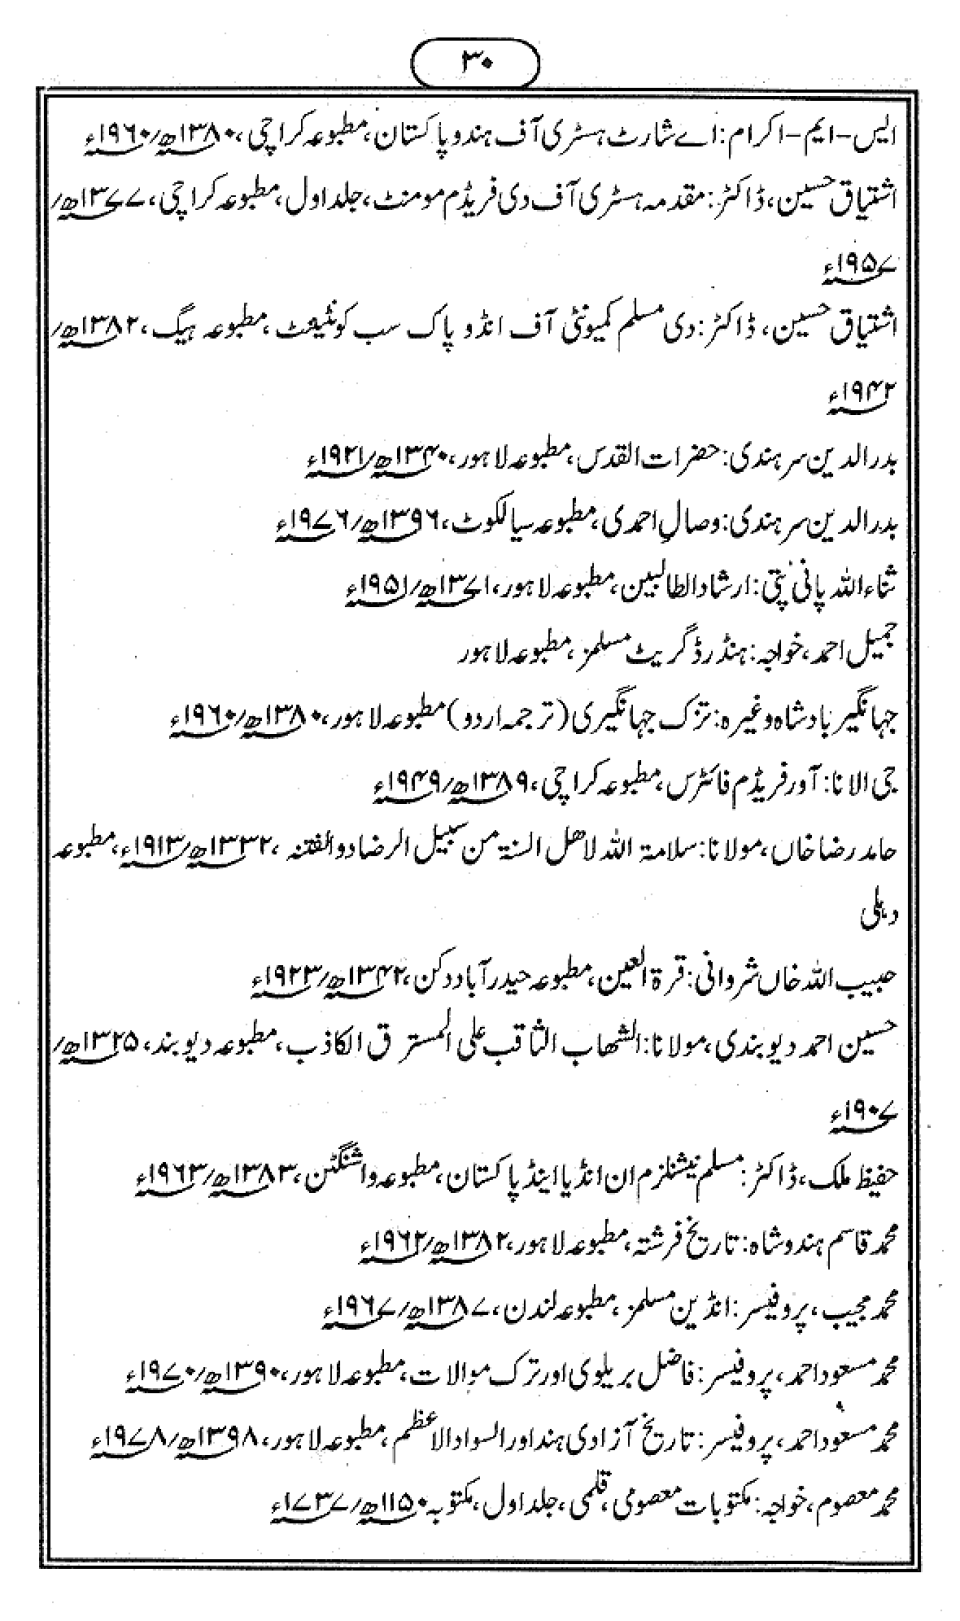 ۳۰
ایس-ایم-اکرام: اے شارٹ ہسٹری آف ہندو پاکستان، مطبوعہ کراچی، ۱۳۸۰ھ/۱۹۶۰ء
اشتیاق حسین، ڈاکٹر: مقدمہ ہسٹری آف دی فریڈم مومنٹ، جلد اول، مطبوعہ کراچی، ۱۳۷۷ھ/
۱۹۵۷ء
اشتیاق حسین، ڈاکٹر: دی مسلم کمیونٹی آف انڈو پاک سب کونٹیننٹ، مطبوعہ ہیگ، ۱۳۸۲ھ/
۱۹۴۲ء
بدرالدین سرہندی: حضرات القدس، مطبوعہ لاہور، ۱۳۴۰ھ/۱۹۲۱ء
بدرالدین سرہندی: وصالِ احمدی، مطبوعہ سیالکوٹ، ۱۳۹۶ھ/۱۹۷۶ء
ثناءاللہ پانی پتی: ارشاد الطالبین، مطبوعہ لاہور، ۱۳۷۱ھ/۱۹۵۱ء
جمیل احمد، خواجہ: ہنڈرڈ گریٹ مسلمز، مطبوعہ لاہور
جہانگیر بادشاہ وغیرہ: تزک جہانگیری (ترجمہ اردو) مطبوعہ لاہور، ۱۳۸۰ھ/۱۹۶۰ء
جی الانا: آور فریڈم فائٹرس، مطبوعہ کراچی، ۱۳۸۹ھ/۱۹۴۹ء
حامد رضا خاں، مولانا: سلامۃ اللہ لاھل السنۃ من سبیل الرضا دوالفتنہ، ۱۳۳۲ھ/۱۹۱۳ء، مطبوعہ
دہلی
حبیب اللہ خاں شروانی: قرۃ العین، مطبوعہ حیدرآباد دکن، ۱۳۴۲ھ/۱۹۲۳ء
حسین احمد دیوبندی، مولانا: الشھاب الثاقب علی المسترق الکاذب، مطبوعہ دیوبند، ۱۳۲۵ھ/
۱۹۰۷ء
حفیظ ملک، ڈاکٹر: مسلم نیشنلزم ان انڈیا اینڈ پاکستان، مطبوعہ واشنگٹن، ۱۳۸۳ھ/۱۹۶۳ء
محمد قاسم ہندوشاہ: تاریخ فرشتہ، مطبوعہ لاہور، ۱۳۸۲ھ/۱۹۶۲ء
محمد مجیب، پروفیسر: انڈین مسلمز، مطبوعہ لندن، ۱۳۸۷ھ/۱۹۶۷ء
محمد مسعود احمد، پروفیسر: فاضل بریلوی اور ترک موالات، مطبوعہ لاہور، ۱۳۹۰ھ/۱۹۷۰ء
محمد مسعود احمد، پروفیسر: تاریخ آزادی ہند اور السواد الاعظم، مطبوعہ لاہور، ۱۳۹۸ھ/۱۹۷۸ء
محمد معصوم، خواجہ: مکتوبات معصومی، قلمی، جلد اول، مکتوبہ ۱۱۵۰ھ/۱۷۳۷ء